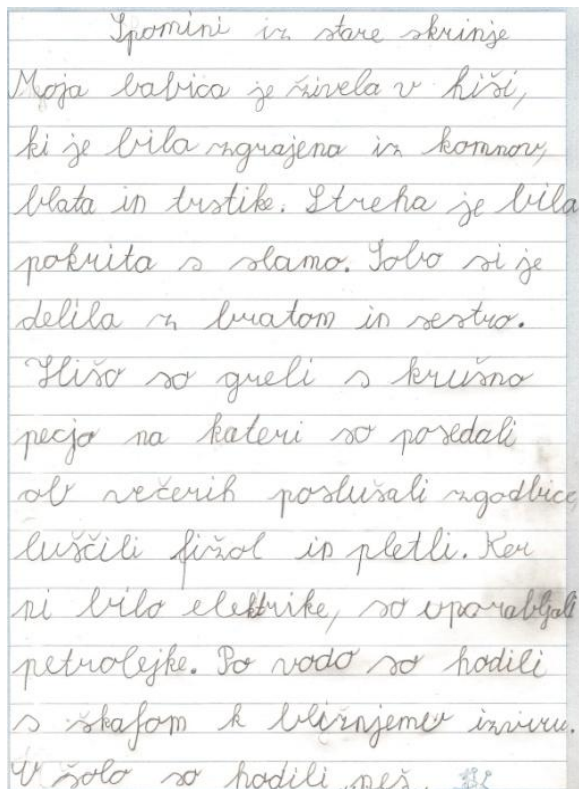 Spomini iz stare skrinje
Moja babica je živela v hiši,
ki je bila zgrajena iz kamnov,
blata in trstike. Streha je bila
pokrita s slamo. Sobo si je
delila z bratom in sestro.
Hišo so greli s krušno
pečjo na kateri so posedali
ob večerih poslušali zgodbice,
luščili fižol in pletli. Ker
ni bilo elektrike, so uporabljali
petrolejke. Po vodo so hodili
s škafom k bližnjemu izviru.
V šolo so hodili peš.